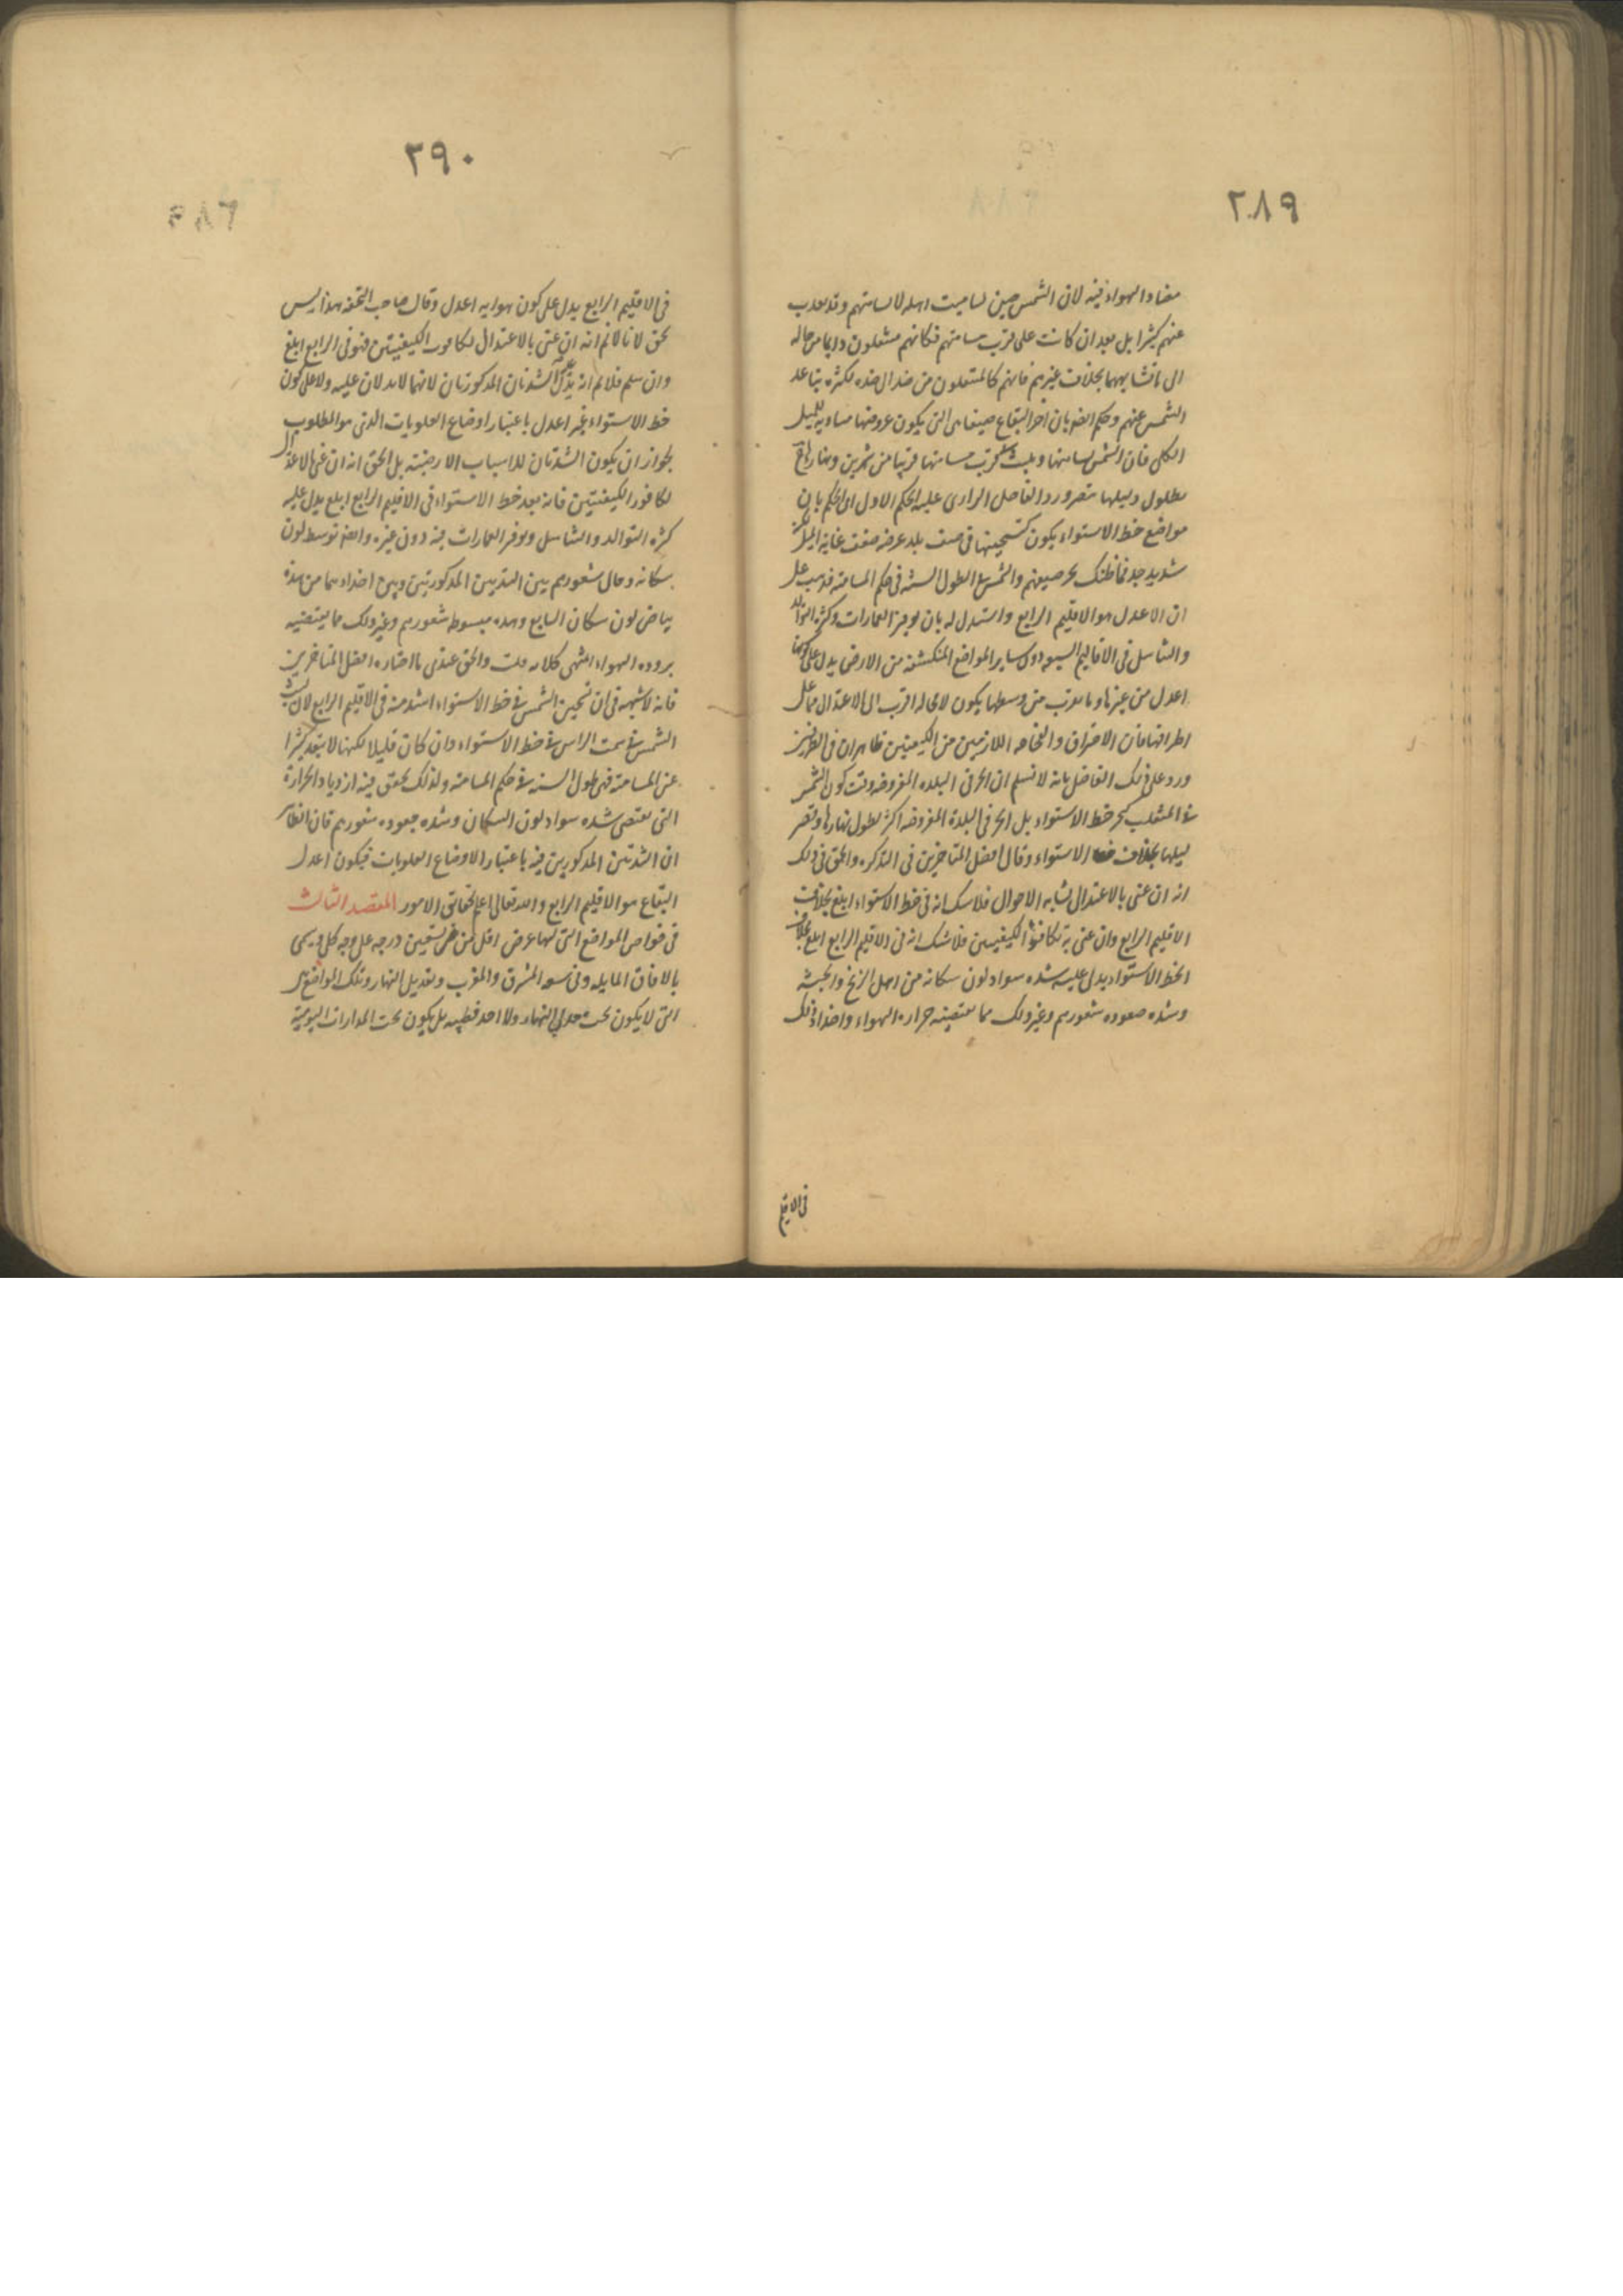 ٢٨٩
الهواء فيه لان الشمس حين تسامت اهله لا تسامتهم وقد بعدت
عنهم كثيرا بل بعد ان كانت على قرب مسامتهم فكانهم منتقلون دايما من حالة
الى ما تشابهها بخلاف غيرهم فانهم كالمنتقلون من ضد الى ضده لكثرة تباعد
الشمس عنهم وحكم ايضا بان احر البقاع صيفا هى التى يكون عروضها مساوية للميل
الكلى فان الشمس تسامتها وتلبث قرب مسامتها قريبا من شهرين ونهارها
يطول وليلها يقصر ورد الفاضل الرازى عليه الحكم الاول اى الحكم بان
مواضع خط الاستواء يكون تسخينها فى صيف بلد عرضه ضعف غاية الميل
شديد جدا فما ظنك بحر صيفهم والشمس طول السنة فى حكم المسامتة فذهب على
ان الاعدل هو الاقليم الرابع واستدل له بان توفر العمارات وكثرة التوالد
والتناسل فى الاقاليم السبعة دون ساير المواضع المنكشفة من الارض يدل على كونها
اعدل من غيرها وما يقرب من وسطها يكون لا محالة اقرب الى الاعتدال مما على
اطرافها فان الاحتراق والفجاجة اللازمين من الكيفيتين ظاهران فى الطرفين
ورد على ذلك الفاضل بانه لا نسلم ان الحر فى البلدة المفروضة وقت كون الشمس
فى المنقلب كحر خط الاستواء بل الحر فى البلدة المفروضة اكثر لطول نهارها وقصر
ليلها بخلاف خط الاستواء وقال افضل المتاخرين فى التذكرة والحق فى ذلك
انه ان عنى بالاعتدال تشابه الاحوال فلا شك انه فى خط الاستواء ابلغ بخلاف
الاقليم الرابع وان عنى به تكافؤ الكيفيتين فلا شك انه فى الاقليم الرابع ابلغ بخلاف
الخط الاستواء يدل عليه شدة سواد لون سكانه من اهل الزنج والحبشة
وشدة جعودة شعورهم وغير ذلك مما تقتضيه حرارة الهواء واضداد ذلك
فى الاقليم
٢٩٠
فى الاقليم الرابع يدل على كون هوايه اعدل وقال صاحب التحفة هذا ليس
بحق لانا لا نم انه ان عنى بالاعتدال تكافؤ الكيفيتين فهو فى الرابع ابلغ
وان سلم فلا نم انه يدل الشدتان المذكورتان لانهما لا يدلان عليه ولا على كون
خط الاستواء غير اعدل باعتبار اوضاع العلويات الذى هو المطلوب
لجواز ان يكون الشدتان للاسباب الارضية بل الحق انه ان عنى بالاعتدال
تكافؤ الكيفيتين فانه بعد خط الاستواء فى الاقليم الرابع ابلغ يدل عليه
كثرة التوالد والتناسل وتوفر العمارات فيه دون غيره وايضا توسط لون
سكانه وحال شعورهم بين الشدتين المذكورتين وبين اضدادهما من شدة
بياض لون سكان السابع وشدة سبوطة شعورهم وغير ذلك مما يقتضيه
برودة الهواء انتهى كلامه قلت والحق عندى ما اختاره افضل المتاخرين
فانه لا شبهة فى ان تسخين الشمس فى خط الاستواء اشد منه فى الاقليم الرابع لان لبث
الشمس فى سمت الراس فى خط الاستواء وان كان قليلا لكنها لا تبعد كثيرا
عن المسامتة فهى طول السنة فى حكم المسامتة ولذلك تحقق فيه ازدياد الحرارة
التى تقتضى شدة سواد لون السكان وشدة جعودة شعورهم فان الظاهر
ان الشدتين المذكورتين فيه باعتبار الاوضاع العلويات فيكون اعدل
البقاع هو الاقليم الرابع والله تعالى اعلم بحقايق الامور المقصد الثالث
فى خواص المواضع التى لها عرض اقل من تسعين درجة على وجه كلى ويسمى
بالافاق المايلة وفى سعة المشرق والمغرب وتعديل النهار وتلك المواضع هى
التى لا يكون تحت معدل النهار ولا احد قطبيه بل يكون تحت المدارات اليومية